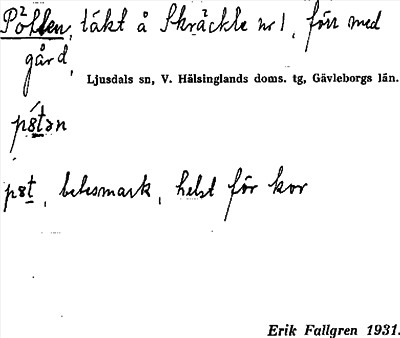 Pōtten, täkt å Skräckle nr 1, förr med
gård,
Ljusdals sn, V. Hälsinglands doms. tg, Gävleborgs län.
betesmark, helst för kor
Erik Fallgren 1931.